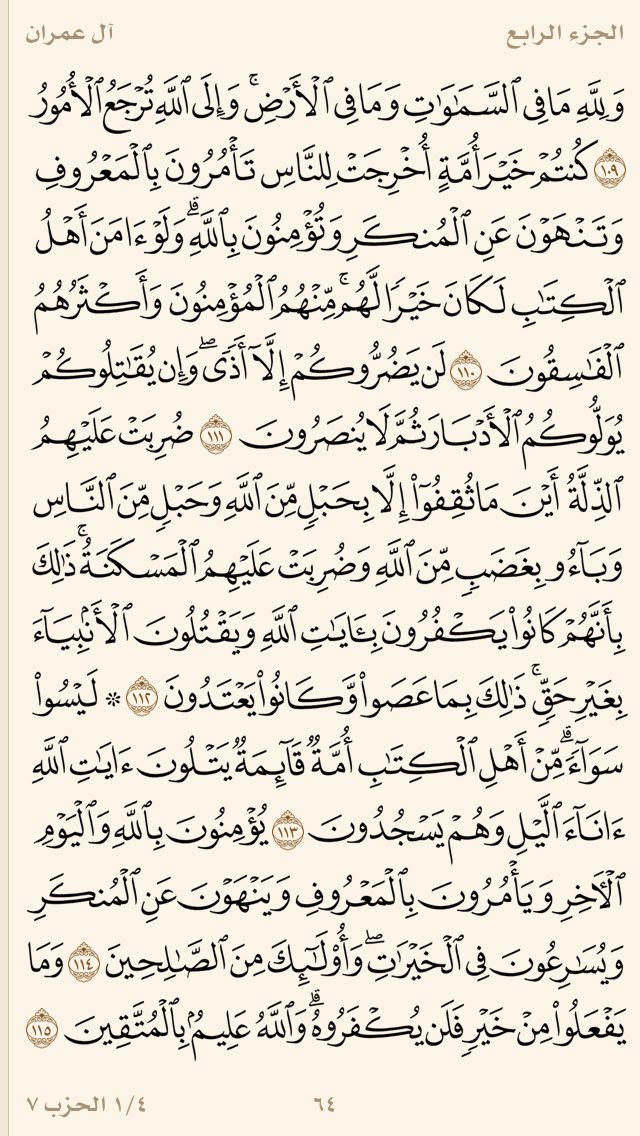 الجزء الرابع
آل عمران
وَلِلَّهِ مَا فِي ٱلسَّمَٰوَٰتِ وَمَا فِي ٱلۡأَرۡضِۚ وَإِلَى ٱللَّهِ تُرۡجَعُ ٱلۡأُمُورُ
١٠٩ كُنتُمۡ خَيۡرَ أُمَّةٍ أُخۡرِجَتۡ لِلنَّاسِ تَأۡمُرُونَ بِٱلۡمَعۡرُوفِ
وَتَنۡهَوۡنَ عَنِ ٱلۡمُنكَرِ وَتُؤۡمِنُونَ بِٱللَّهِۗ وَلَوۡ ءَامَنَ أَهۡلُ
ٱلۡكِتَٰبِ لَكَانَ خَيۡرٗا لَّهُمۚ مِّنۡهُمُ ٱلۡمُؤۡمِنُونَ وَأَكۡثَرُهُمُ
ٱلۡفَٰسِقُونَ ١١٠ لَن يَضُرُّوكُمۡ إِلَّآ أَذٗىۖ وَإِن يُقَٰتِلُوكُمۡ
يُوَلُّوكُمُ ٱلۡأَدۡبَارَ ثُمَّ لَا يُنصَرُونَ ١١١ ضُرِبَتۡ عَلَيۡهِمُ
ٱلذِّلَّةُ أَيۡنَ مَا ثُقِفُوٓاْ إِلَّا بِحَبۡلٖ مِّنَ ٱللَّهِ وَحَبۡلٖ مِّنَ ٱلنَّاسِ
وَبَآءُو بِغَضَبٖ مِّنَ ٱللَّهِ وَضُرِبَتۡ عَلَيۡهِمُ ٱلۡمَسۡكَنَةُۚ ذَٰلِكَ
بِأَنَّهُمۡ كَانُواْ يَكۡفُرُونَ بِـَٔايَٰتِ ٱللَّهِ وَيَقۡتُلُونَ ٱلۡأَنۢبِيَآءَ
بِغَيۡرِ حَقّٖۚ ذَٰلِكَ بِمَا عَصَواْ وَّكَانُواْ يَعۡتَدُونَ ١١٢ ۞ لَيۡسُواْ
سَوَآءٗۗ مِّنۡ أَهۡلِ ٱلۡكِتَٰبِ أُمَّةٞ قَآئِمَةٞ يَتۡلُونَ ءَايَٰتِ ٱللَّهِ
ءَانَآءَ ٱلَّيۡلِ وَهُمۡ يَسۡجُدُونَ ١١٣ يُؤۡمِنُونَ بِٱللَّهِ وَٱلۡيَوۡمِ
ٱلۡأٓخِرِ وَيَأۡمُرُونَ بِٱلۡمَعۡرُوفِ وَيَنۡهَوۡنَ عَنِ ٱلۡمُنكَرِ
وَيُسَٰرِعُونَ فِي ٱلۡخَيۡرَٰتِۖ وَأُوْلَٰٓئِكَ مِنَ ٱلصَّٰلِحِينَ ١١٤ وَمَا
يَفۡعَلُواْ مِنۡ خَيۡرٖ فَلَن يُكۡفَرُوهُۗ وَٱللَّهُ عَلِيمُۢ بِٱلۡمُتَّقِينَ ١١٥
٦٤
١/٤ الحزب ٧